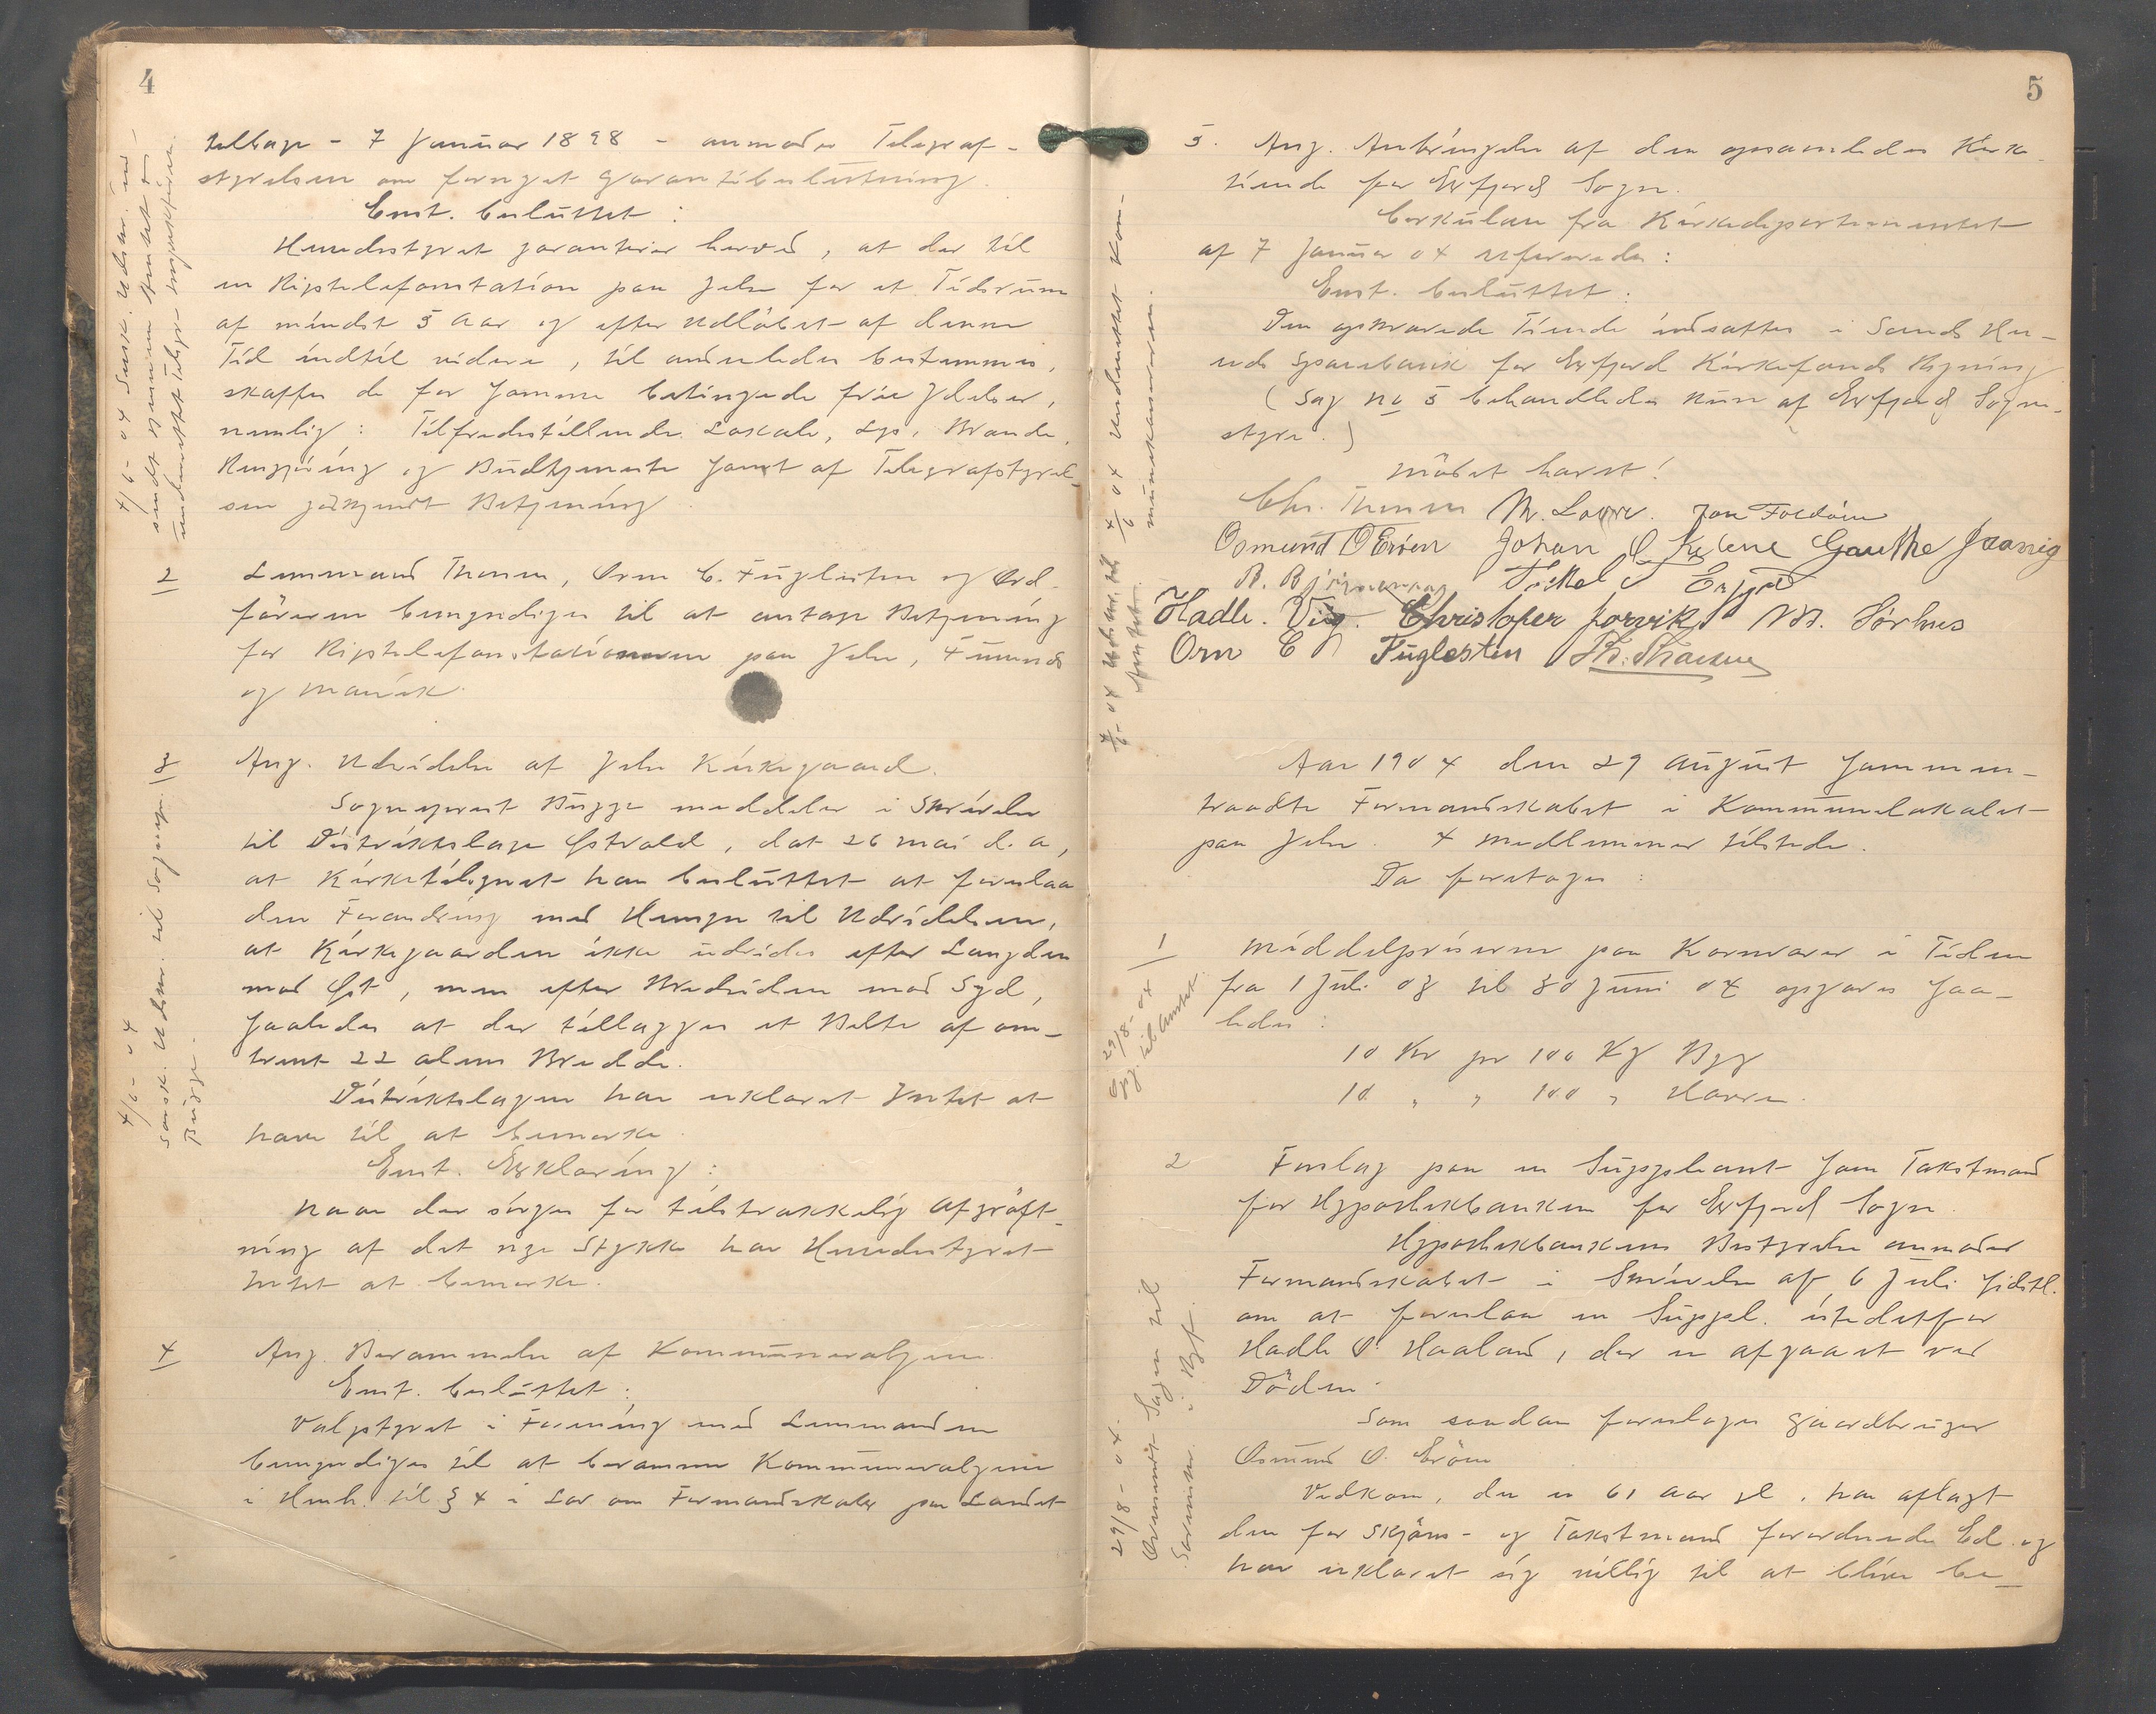 4
tilbage - 7 Januar 1898 - anmoder Telegraf-
styrelsen om fornyet Garantibeslutning.
Enst. besluttet:
Herredsstyret garanterer herved, at der til
en Rigstelefonstation paa Jelse for et Tidsrum
af mindst 5 Aar og efter Udløbet af denne
Tid indtil videre, til anderledes bestemmes,
skaffes de for samme betingede frie Ydelser,
nemlig: Tilfredsstillende Lokale, Lys, Brænde,
Rengjøring og Budtjeneste samt af Telegrafstyrel-
sen godkjendt Betjening.
4/6 - 04 Særsk. Udskr. ind-
sendt gjennem Amtet
2
Lensmand Thomsen, Orm E. Fuglesten og Ord-
føreren bemyndiges til at antage Betjening
for Rigstelefonstationerne paa Jelse,
og Marvik.
3
Ang. Udvidelse af Jelse Kirkegaard.
Sogneprest Bugge meddeler i Skrivelse
til Distriktslæge Østvold, dat 26 Mai d. A,
at Kirketilsynet har besluttet at foreslaa
den Forandring med Hensyn til Udvidelsen,
at Kirkegaarden ikke udvides efter Længden
mod Øst, men efter Bredsiden mod Syd,
saaledes at der tillægges et Belte af om-
trent 22 Alens Bredde.
Distriktslægen har erklæret Intet at
have til at bemerke.
Enst. Erklæring:
Naar der sørges for tilstrækkelig Afgrøft-
ning af det nye Stykke har Herredsstyret
Intet at bemerke.
4/6 - 04
Særsk. Udskr. til Sognepr.
Bugge.
4
Ang. Berammelse af Kommunevalgene.
Enst. besluttet:
Valgstyret i Forening med Lensmanden
bemyndiges til at beramme Kommunevalgene
i Henh. til § 4 i Lov om Formandskaber paa Landet
5
5. Ang. Anbringelse af den opsamlede Korn-
tiende for Erfjord Sogn.
Cirkulære fra Kirkedepartementet
af 7 Januar 04 refereredes:
Enst. besluttet:
Den opsparede Tiende indsættes i Sands Her-
reds Sparebank for Erfjord Kirkefonds Regning
(Sag No 5 behandledes kun af Erfjord Sogne-
styre.)
4/6 04 Underrettet Kom-
munekassereren.
4/6 - 04 Udskr. til
Amtet.
Mødet hævet!
Chr. Thomsen M. Lovre. Jon Foldøen
Osmund O Erøen Johan O Kylene Gauthe
Hadle. Vig. Christofer Jorvik M. Sørhus
Orm E Fuglesten
Aar 1904 den 29 August sammen-
traadte Formandskabet i Kommunelokalet
paa Jelse. 4 Medlemmer tilstede.
Da foretages:
1
Middelprisene paa Kornvarer i Tiden
fra 1 Juli 03 til 30 Juni 04 opgaves saa-
ledes:
10 Kr pr 100 Kg Byg
10 " " 100 " Havre.
29/8 - 04
Opg. til Amtet.
2
Forslag paa en Suppleant som Takstmand
for Hypothekbanken for Erfjord Sogn.
Hypothekbankens Bestyrelse anmoder
Formandskabet i Skrivelse af 6 Juli sidstl.
om at foreslaa en Suppl. istedetfor
Hadle O. Haaland, der er afgaaet ved
Døden.
Som saadan foreslaaes Gaardbruger
Osmund O. Erøen
Vedkom, der er 61 Aar gl, har aflagt
den for Skjøns- og Takstmænd forordnede Ed og
har erklæret sig villig til at blive be-
29/8 - 04.
Oversendt Sagen til
Sorenskr. i Ryf.